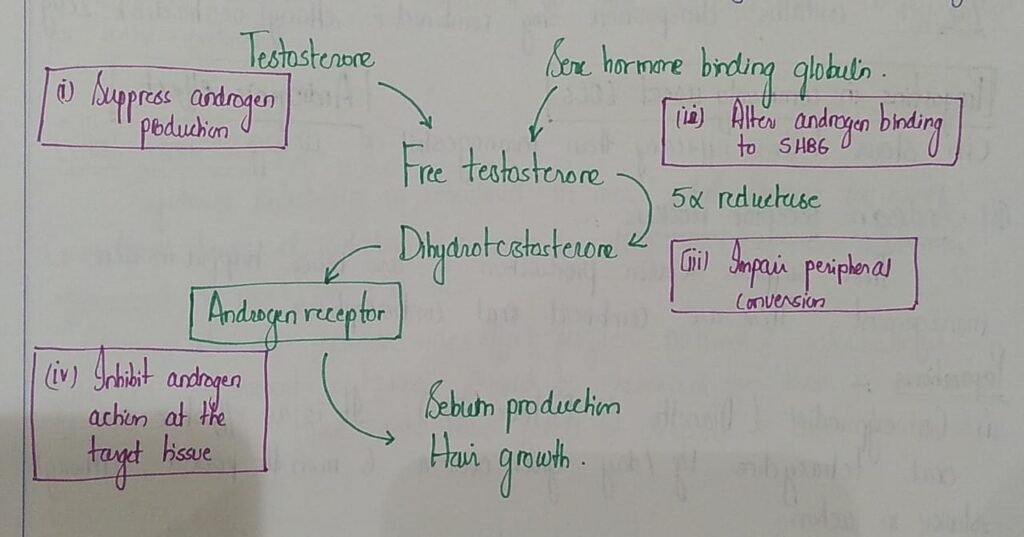 Testosterone
Sex hormone binding globulin.
(i) Suppress androgen
production
(ii) Alter androgen binding
to SHBG
Free testosterone
5α reductase
Dihydrotestosterone
(iii) Impair peripheral
conversion
Androgen receptor
(iv) Inhibit androgen
action at the
target tissue
Sebum production
Hair growth.